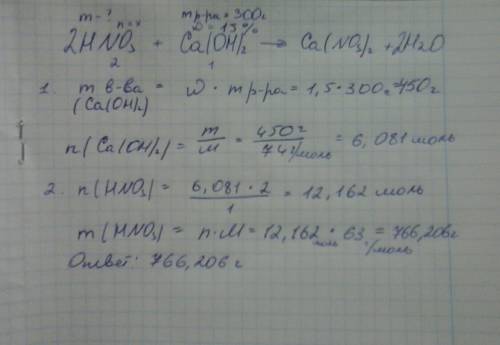 m-? n=x mр-ра=300г
ω=15%
2HNO3 + Ca(OH)2 → Ca(NO3)2 + 2H2O
2 1
1. m в-ва = ω · mр-ра = 1,5 · 300г = 450г
(Ca(OH)2)
n(Ca(OH)2) = m/M = 450г/74г/моль = 6,081 моль
2. n(HNO3) = 6,081 · 2/1 = 12,162 моль
m(HNO3) = n·M = 12,162 моль · 63 г/моль = 766,206г
Ответ: 766,206 г